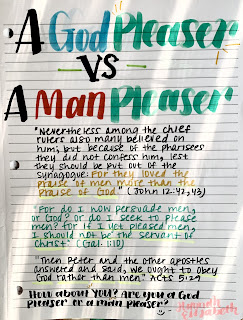 A God Pleaser
VS
A Man Pleaser
"Nevertheless among the chief
rulers also many believed on
him; but because of the pharisees
they did not confess him, lest
they should be put out of the
synagogue: For they loved the
praise of men more than the
praise of God" (John 12:42,43)
"For do I now persuade men,
or God? or do I seek to please
men? for if I yet pleased men,
I should not be the servant of
Christ" (Gal. 1:10)
"Then Peter and the other apostles
answered and said, we ought to obey
God rather than men." Acts 5:29
How about YOU? Are you a God
pleaser or a man pleaser?
Hannah
Elizabeth